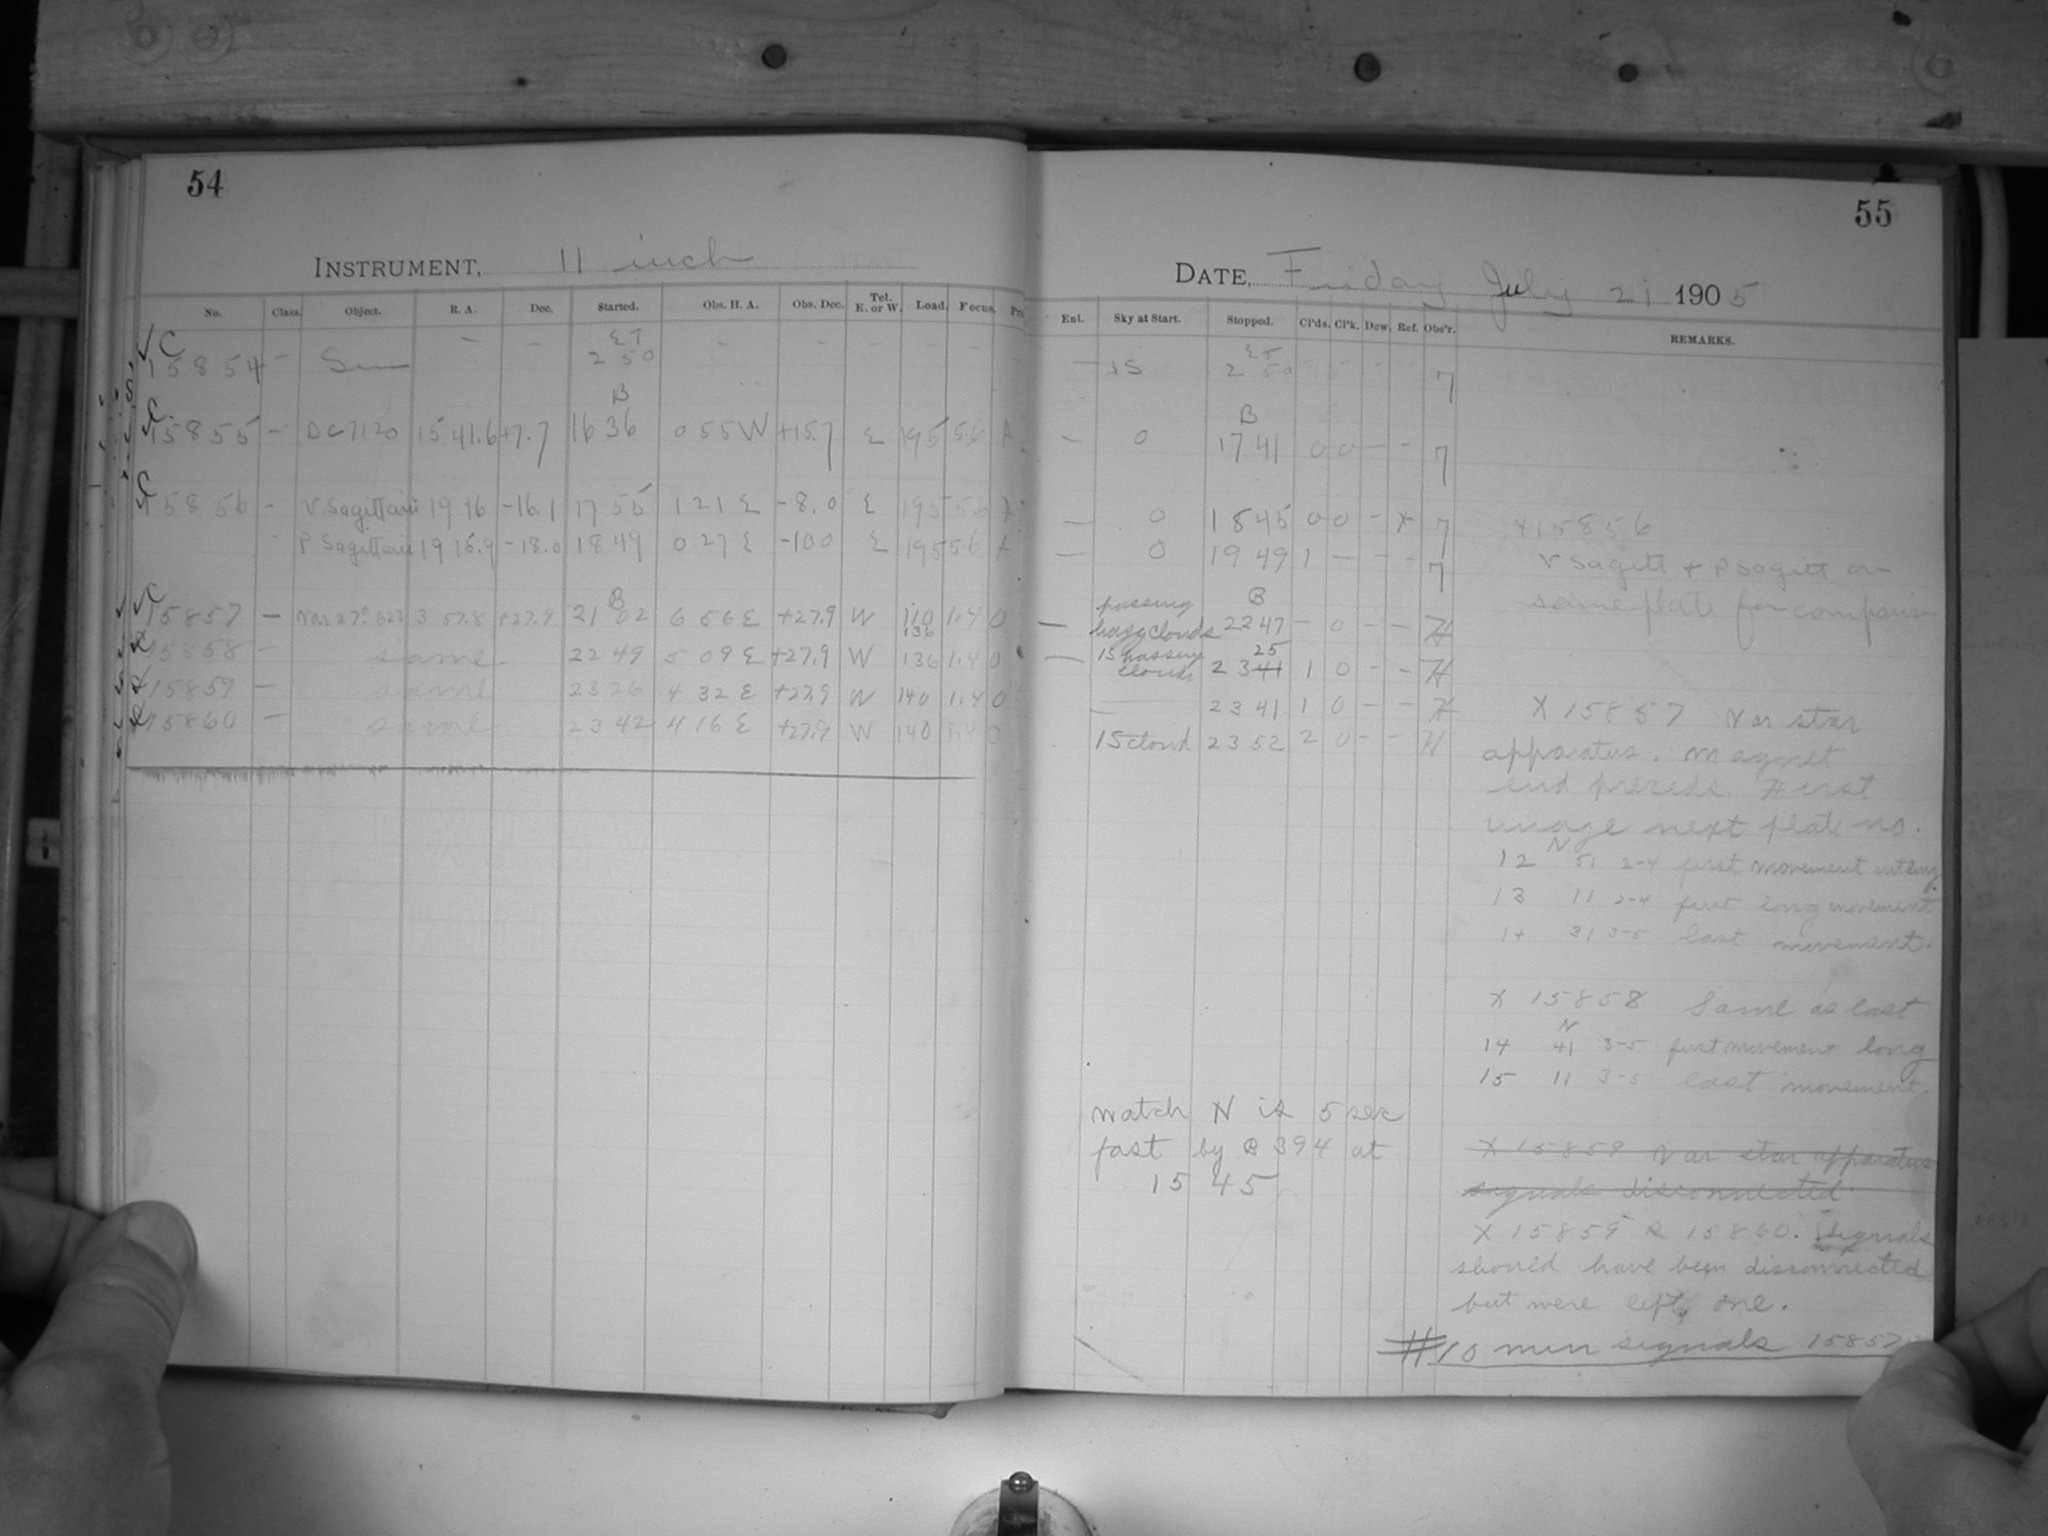 54
INSTRUMENT, 11 inch
No. Class. Object. R. A. Dec. Started. Obs. H. A. Obs. Dec. Tel. E. or W. Load. Focus.
C E T
15854 - Sun - - 2 50 - - - - - -
B
C
15855 - DC7120 15 41.6 +7.7 16 36 0 55 W +15.7 E 195 5.6 A
C
15856 - V Sagittarii 19 16 -16.1 17 55 1 21 E -8.0 E 195 5.6 A
P Sagittarii 19 15.9 -18.0 18 49 0 27 E -10.0 E 195 5.6 A
C B
15857 - Var 27° 622 3 57.8 +27.9 21 02 6 56 E +27.9 W 110 1.4 0
136
15858 - same 22 49 5 09 E +27.9 W 136 1.4 0
15859 - same 23 26 4 32 E +27.9 W 140 1.4 0
15860 - same 23 42 4 16 E +27.9 W 140 1.4 0
55
DATE, Friday July 21 1905
Enl. Sky at Start. Stopped. Cl'ds. Cl'k. Dew. Ref. Obs'r. REMARKS.
E T
- 1S 2 50 - - 7
B
- 0 17 41 0 0 - - 7
- 0 18 45 0 0 - X 7
- 0 19 49 1 - - - 7
passing B
- hazy clouds 22 47 - 0 - - H
25
- 1S passing clouds 23 41 1 0 - - H
- 23 41 1 0 - - H
1S cloud 23 52 2 0 - - H
X 15856
V Sagitt + P Sagitt on
same plate for comparison
X 15857 Var star
apparatus. Magnet
end precede. First
image next plate no.
N
12 51 2-4 first movement not long
13 11 2-4 first long movement
14 31 3-5 last movement.
X 15858 Same as last
N
14 41 3-5 first movement long
15 11 3-5 last movement.
Watch N is 5 sec
fast by B 394 at
15 45
X 15859 Var star apparatus
signals disconnected.
X 15859 & 15860. Signals
should have been disconnected
but were left one.
#10 min signals 15857